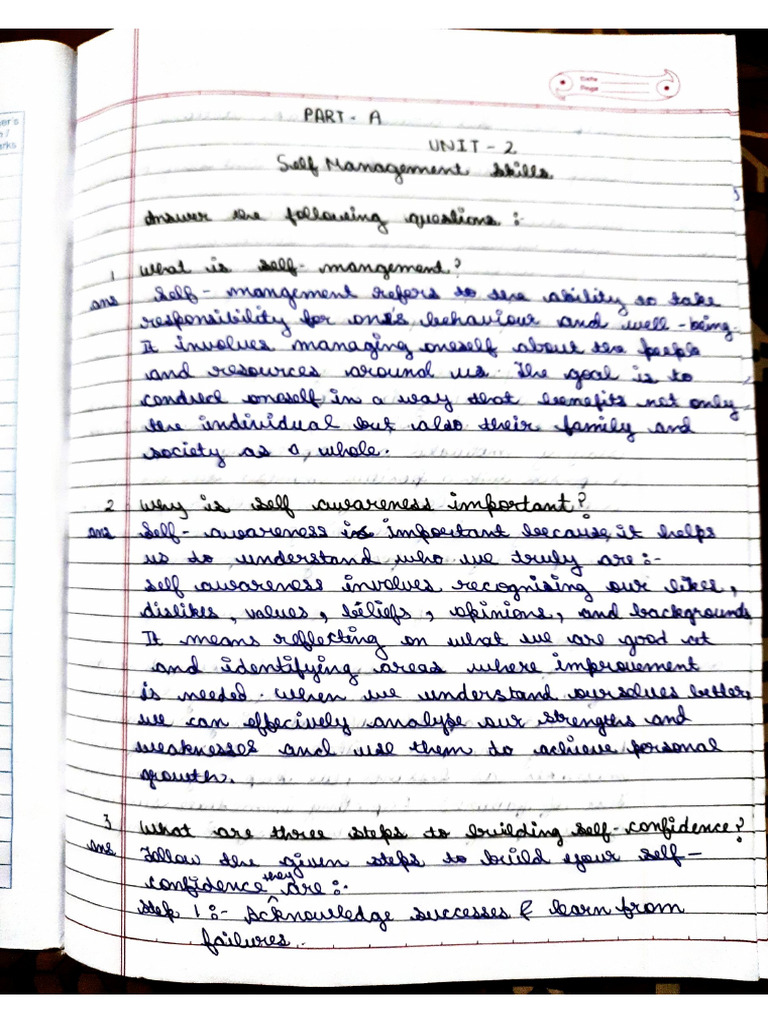 Date
Page
PART - A
UNIT - 2
Self Management Skills
Answer the following questions :-
1 What is self- mangement?
ans Self - mangement refers to the ability to take
responsibility for one's behaviour and well - being.
It involves managing oneself about the people
and resources around us. The goal is to
conduct oneself in a way that benefits not only
the individual but also their family and
society as a whole.
2 Why is self awareness important?
ans Self - awareness is important because it helps
us to understand who we truly are :-
self awareness involves recognising our likes,
dislikes, values, beliefs, opinions, and backgrounds
It means reflecting on what we are good at
and identifying areas where improvement
is needed. When we understand ourselves better,
we can effecively analyse our strengths and
weaknesses and use them to achieve personal
growth.
3 What are three steps to building self-confidence?
ans Follow the given steps to build your self-
confidence they are :-
Step 1 :- Acknowledge successes & learn from
failures.